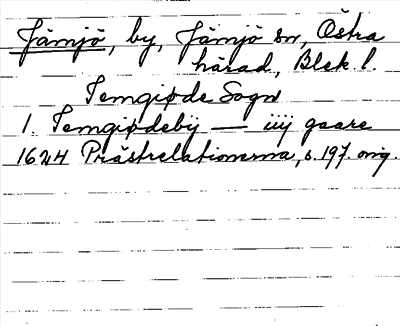 Jämjö, by, Jämjö sn, Östra
härad, Blek. l.
Temgiøde Sogn
1. Temgiødebÿ — iiij gaare
1624 Prästrelationerna, s. 197. orig.